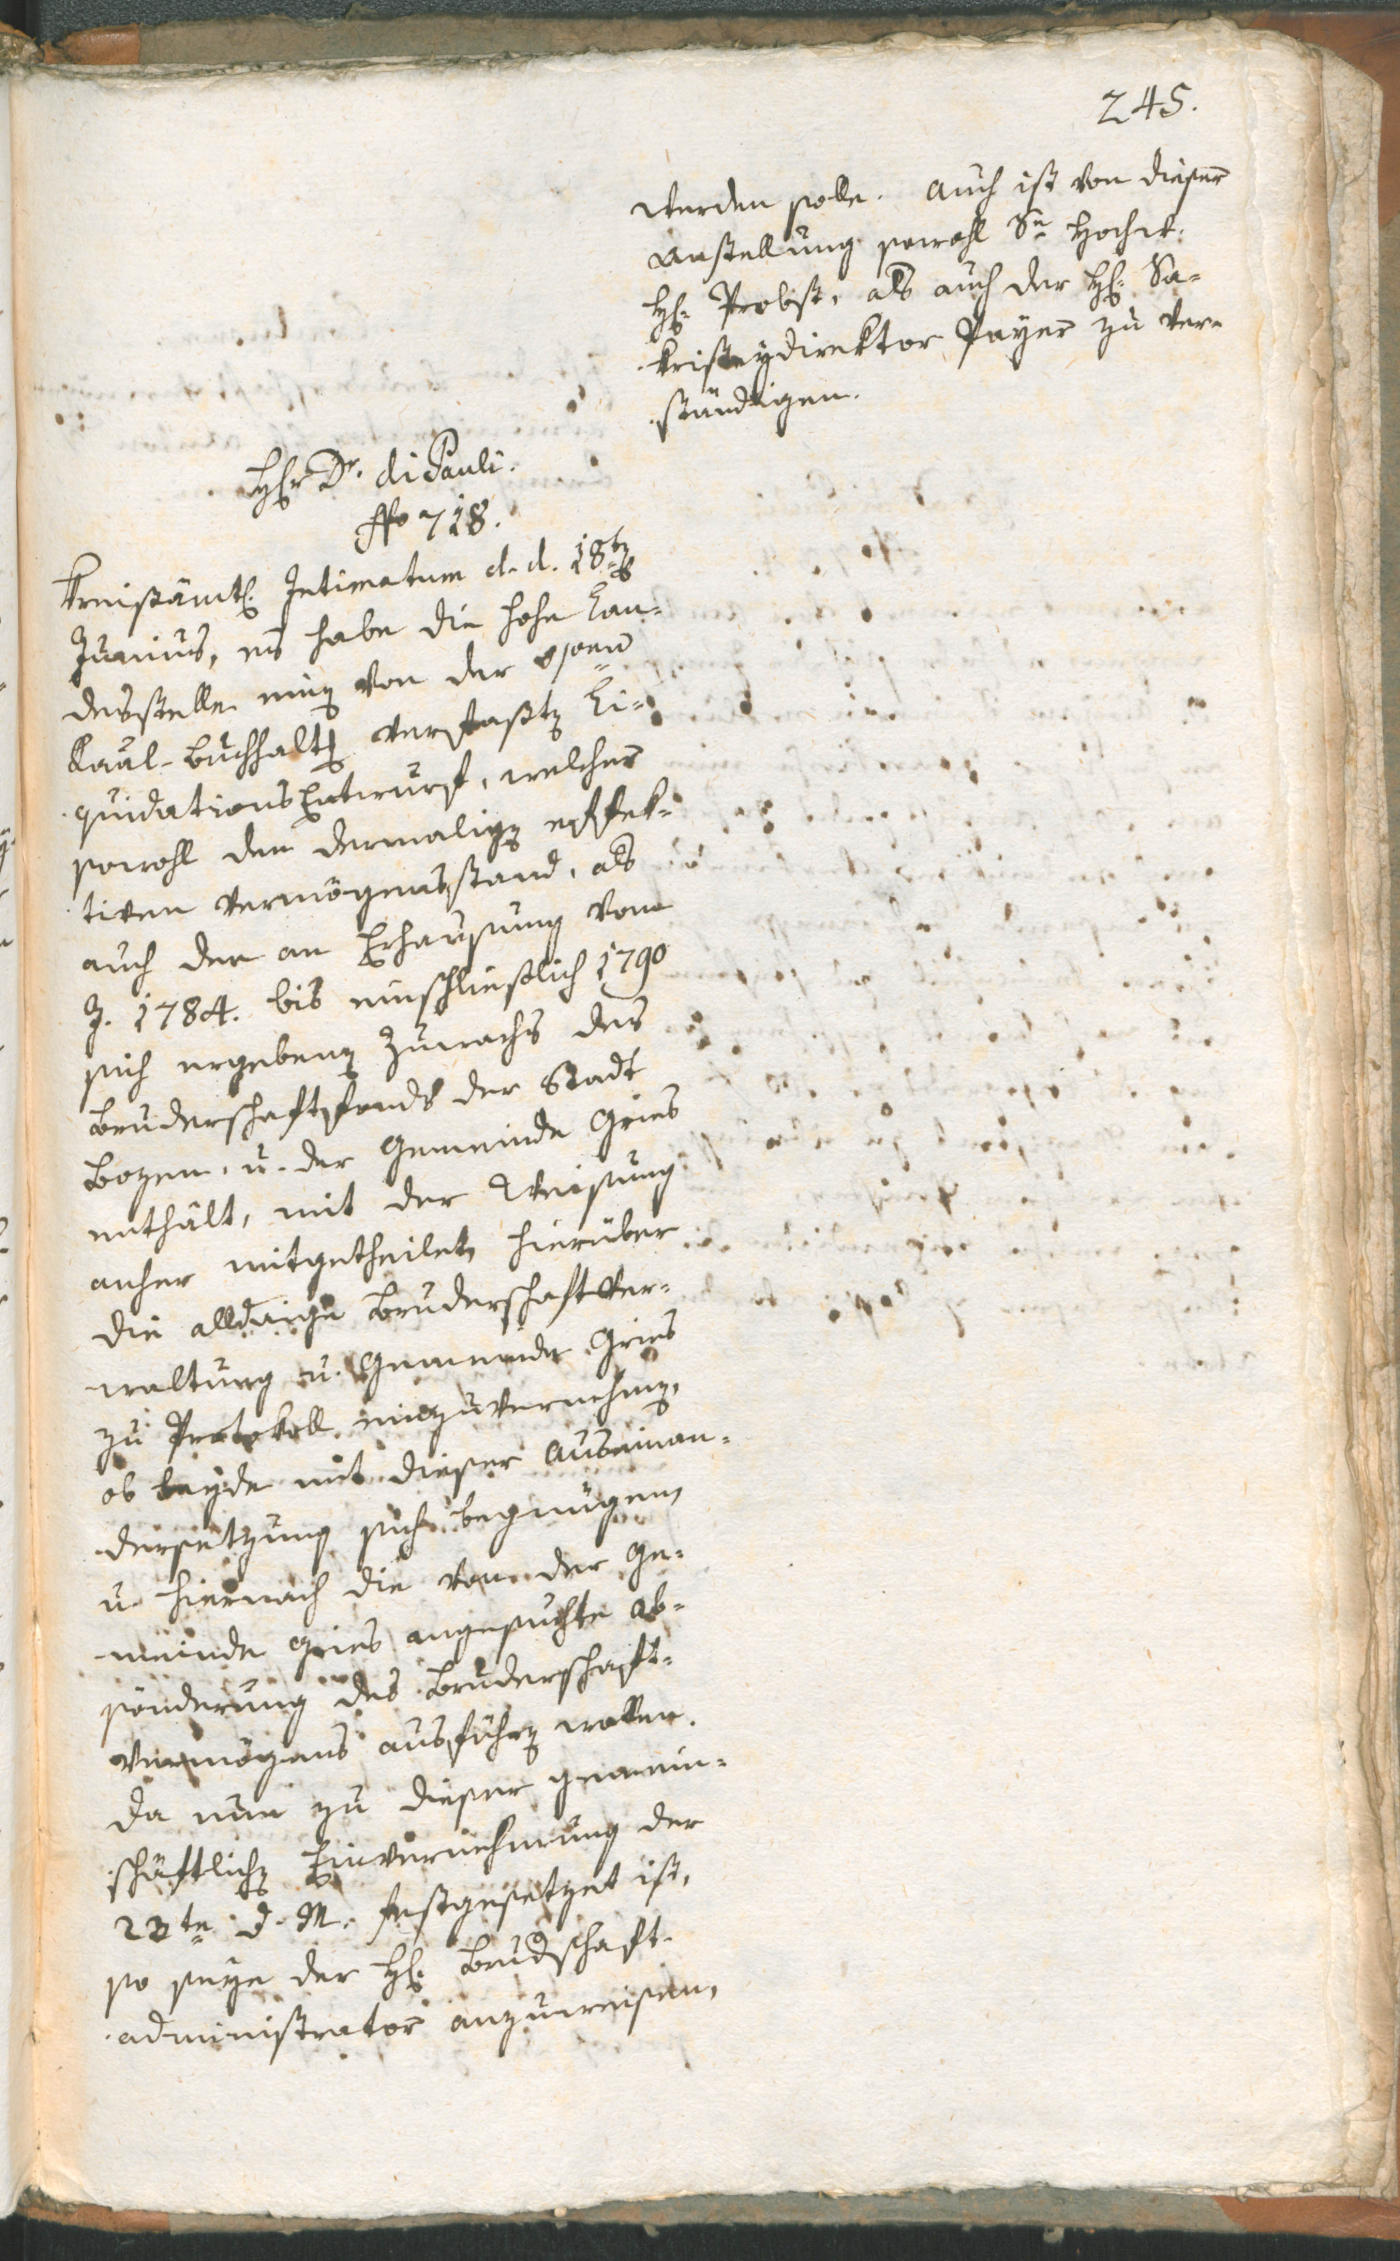 245.
werden solle. Auch ist von dieser
Anstellung sowohl Sr Hochw.
H: Probst, als auch der H: Sa-
kristeydirektor Payer zu ver-
ständigen.
Herr Dr. di Pauli.
No 718.
Kreisämtl. Intimatum d. d. 18ten
Junius, es habe die hohe Lan-
desstelle einen von der
Kaal-Buchhaltg verfaßten Li-
quidations Entwurf, welcher
sowohl den dermaligen effek-
tiven Vermögensstand, als
auch den an Erhausung vom
J. 1784. bis einschließlich 1790
sich ergebenen Zuwachs des
Bruderschaftsfonds der Stadt
Bozen, u. der Gemeinde Gries
enthält, mit der Weisung
anher mitgetheilet, hierüber
die alldaige Bruderschaftver-
waltung u. Gemeinde Gries
zu Protokoll einzuvernehmen,
ob beyde mit dieser Auseinan-
dersetzung sich begnügen,
u. hiernach die von der Ge-
meinde Gries angesuchte Ab-
sönderung des Bruderschaft-
Vermögens ausführen wollen.
Da nun zu dieser gemein-
schäftlichen Einvernehmung der
23te d. M. festgesetzet ist,
so seye der H: Brudschaft-
administrator anzuweisen,